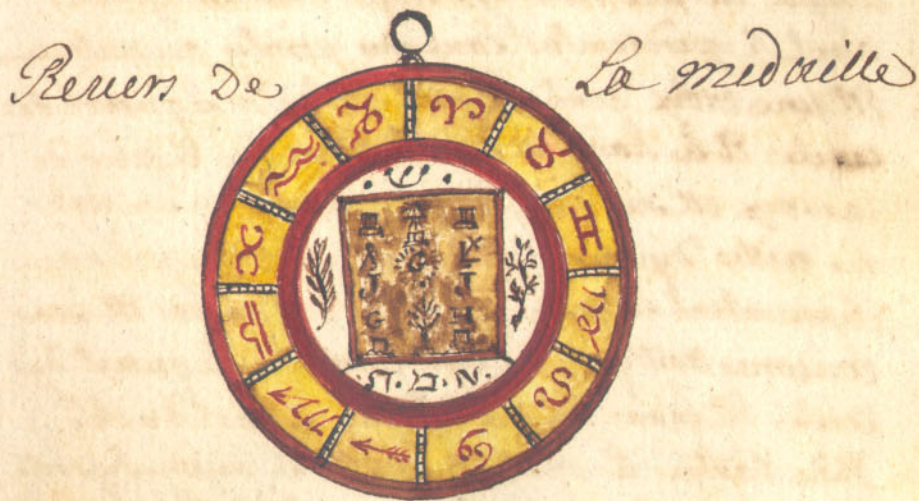 Revers De La medaille
·ש·
·א.מ.ת·